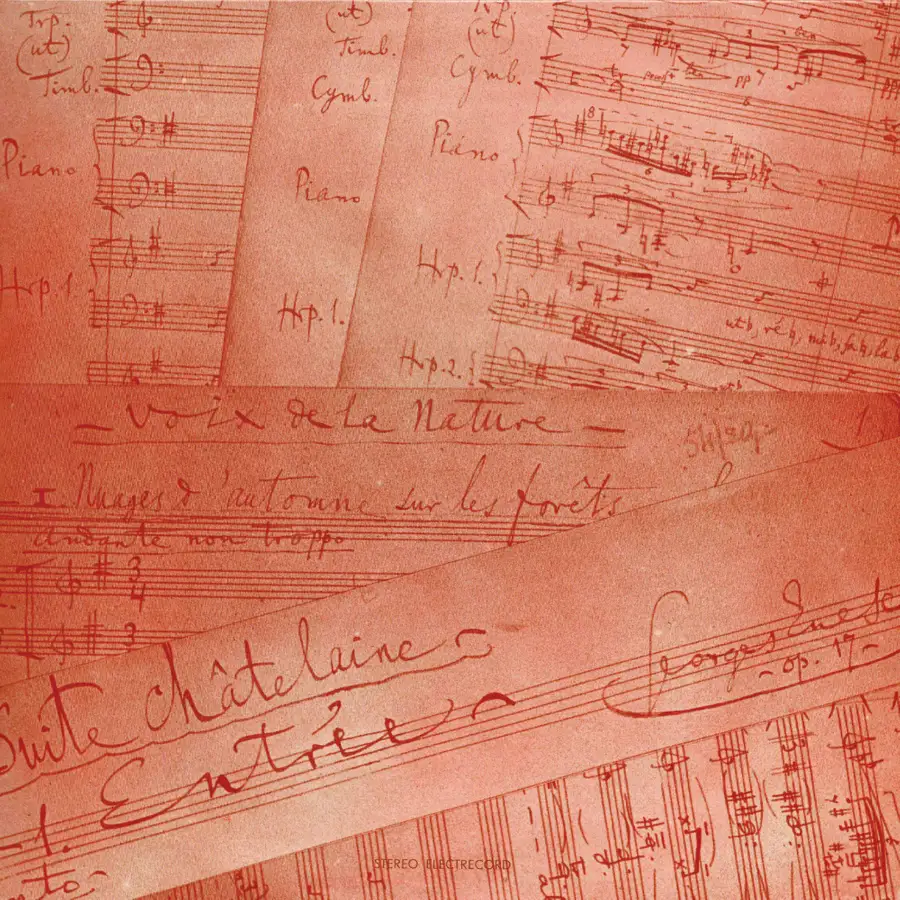 Trp.
(ut)
Timb.
Piano
Hrp. 1.
(ut)
Timb.
Cymb.
Piano
Hrp. 1.
Trp.
(ut)
Cymb.
Piano
Hrp. 1.
Hrp. 2.
pp
8
6
3
utb, réb, mib, fab, lab
– Voix de la Nature –
I. Nuages d'automne sur les forêts
andante non troppo
3
4
3
Suite châtelaine
Georges Enesc
– op. 17 –
1. Entrée
STEREO ELECTRECORD